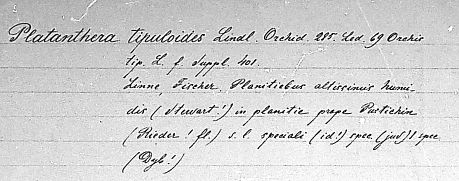 Platanthera tipuloides Lindl. Orchid. 285. Led. 69 Orchis
tip. L. f. Suppl. 401.
Linne, Fischer, Planitiebus altissimis humi
dis (Stewart!) in planitie prope Pustichin
(Rieder! fl.) s. l. speciali (id!) spec. (jud)! spec
(Dyb!)